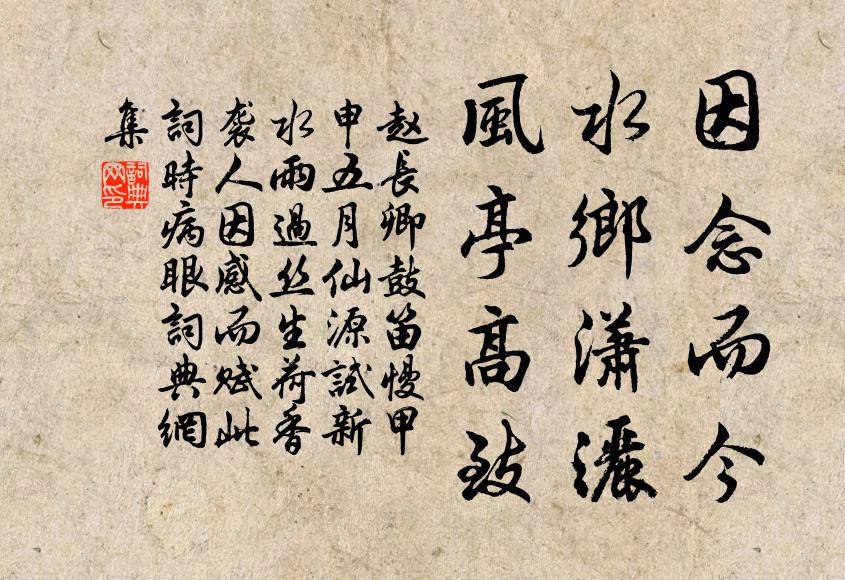 因念而今
水鄉瀟灑
風亭高致
赵長卿鼓笛慢甲
申五月仙源試新
水雨過丝生荷香
袭人因感而赋此
詞時病眼詞典網
集
詞典
网印